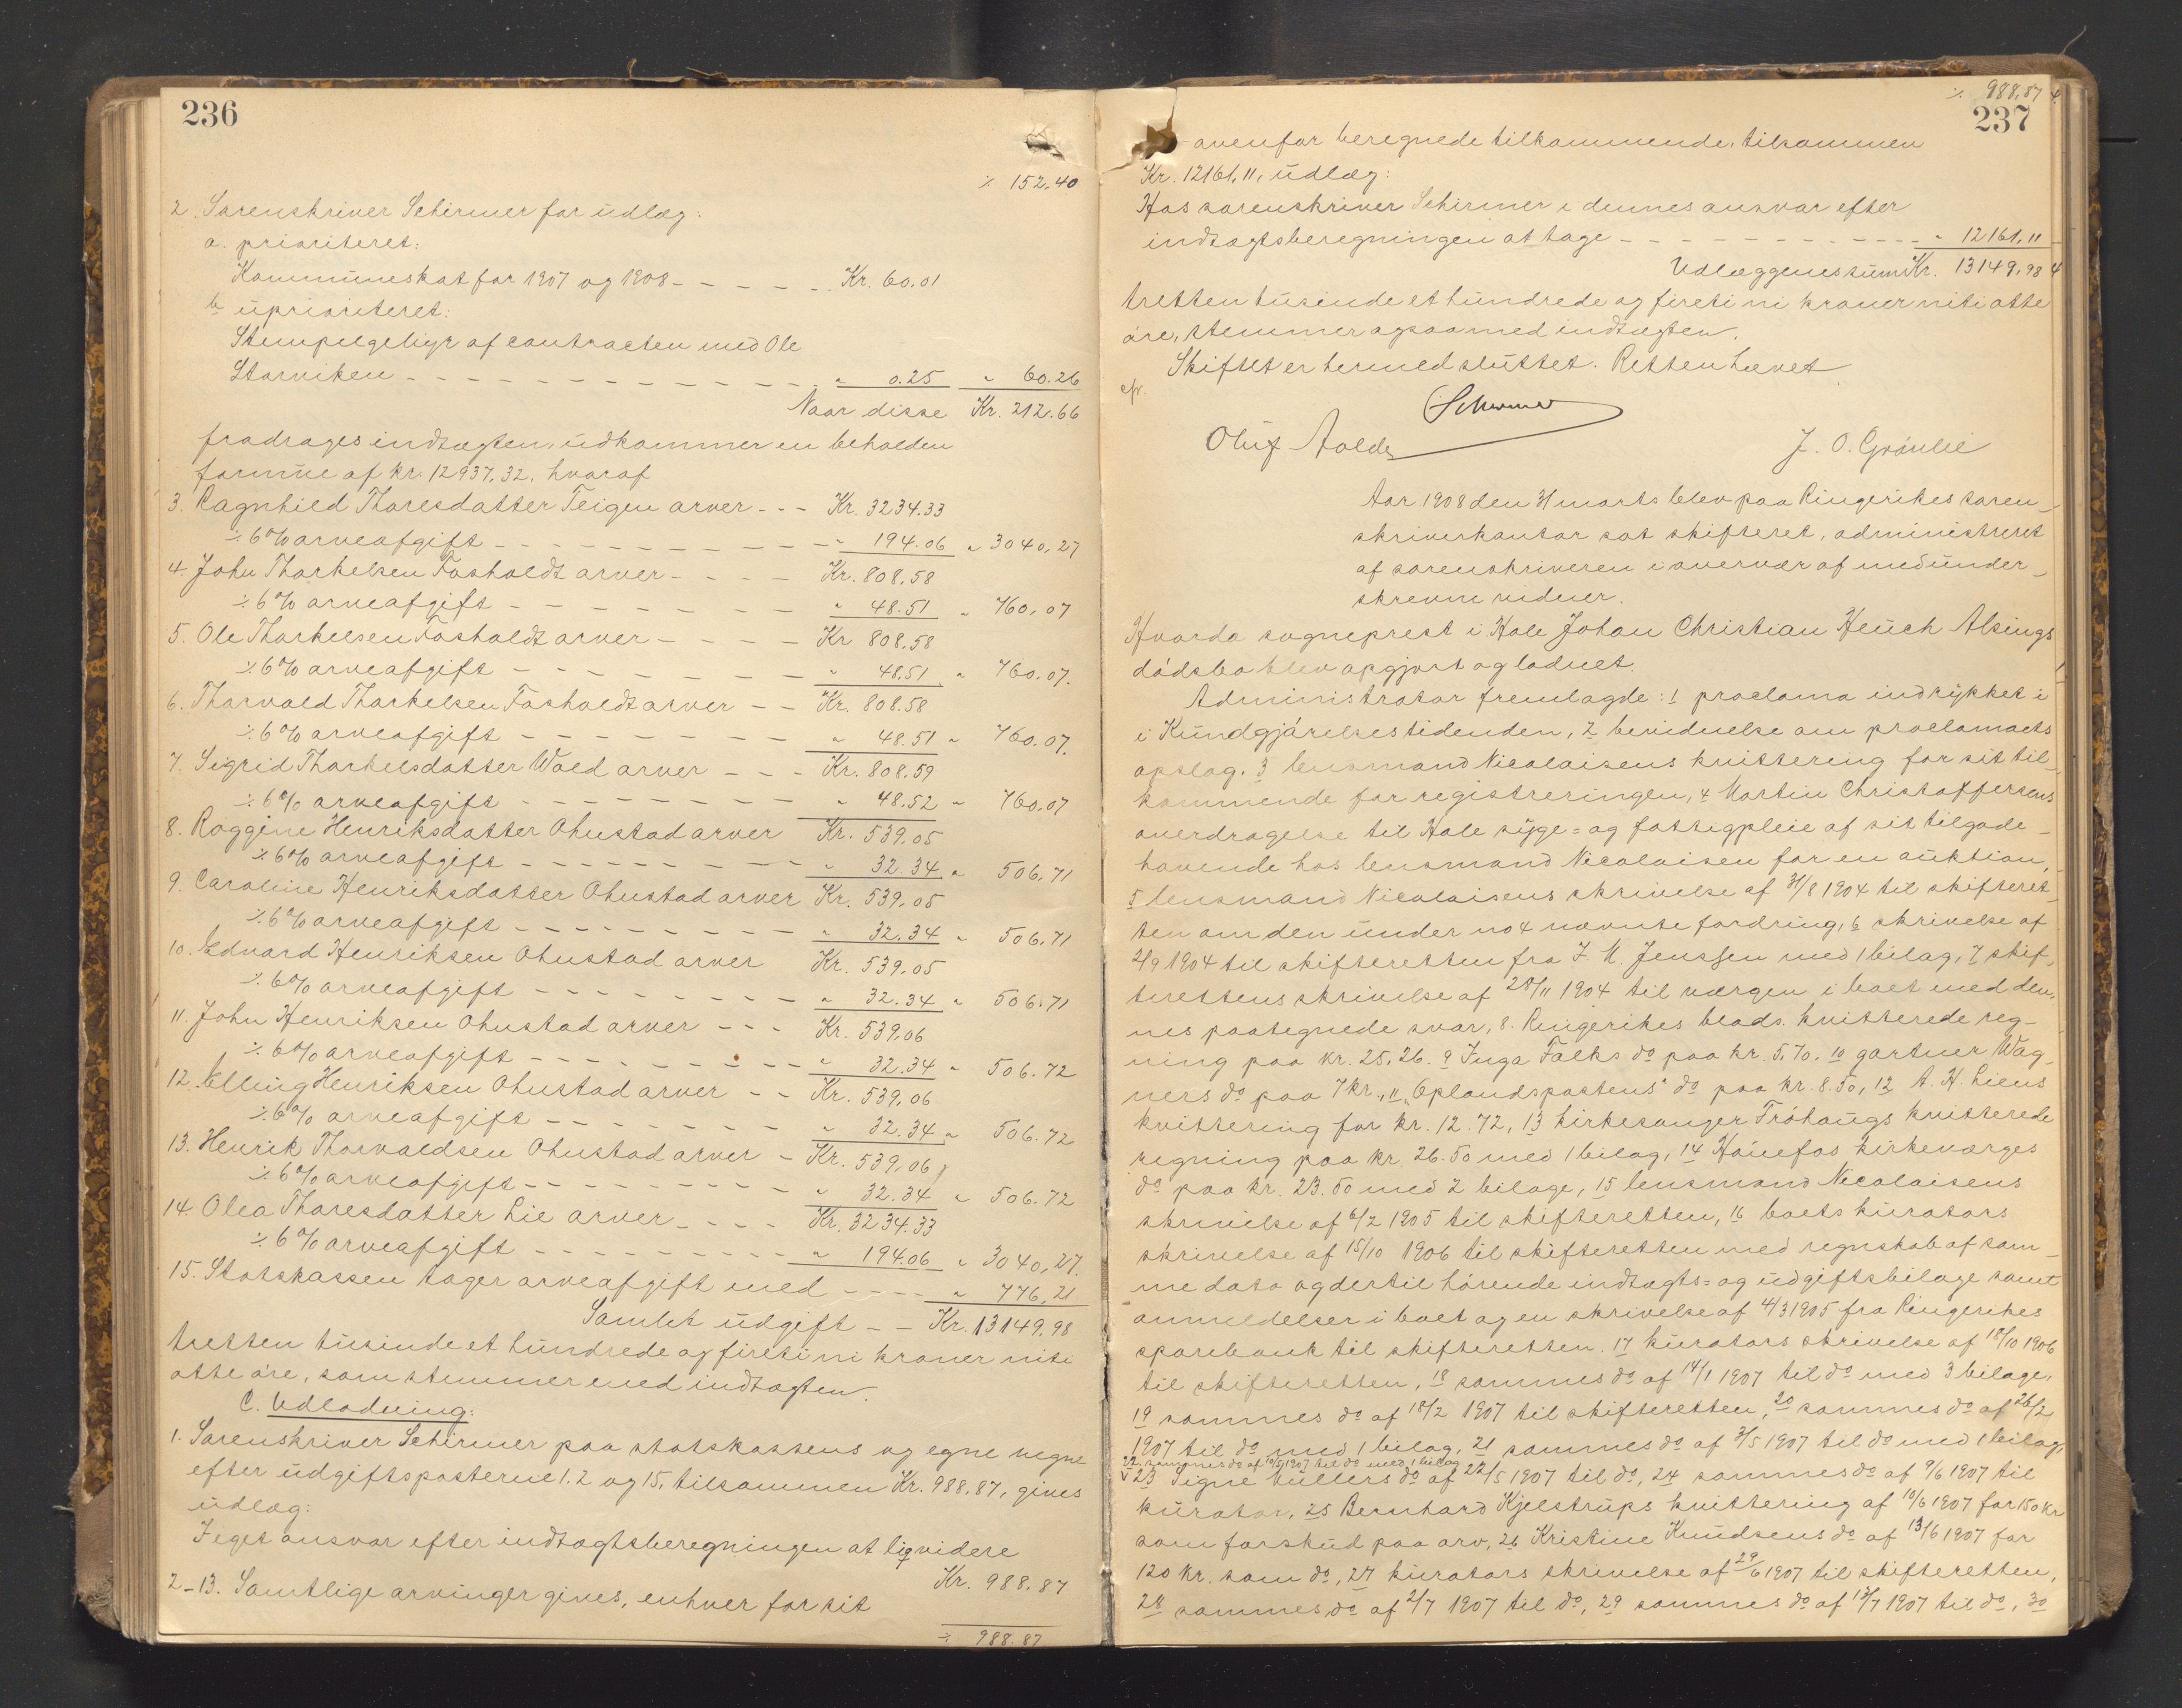 236
٪ 152.40
2. Sorenskriver Schirmer for udlæg:
a. prioriteret:
Kommuneskat for 1907 og 1908 - - - - - Kr. 60.01
b uprioriteret:
Stempelgebyr af contracten med Ole
Storviken - - - - - - - - - - - - - " 0.25 " 60.26
Naar disse Kr. 212.66
fradrages indtægten, udkommer en beholden
formue af kr. 12937.32, hvoraf
3. Ragnhild Thoresdatter Teigen arver - - - Kr. 3234.33
٪ 6% arveafgift - - - - - - - - - - " 194.06 " 3040,27
4. John Thorkelsen Fosholdt arver - - - - Kr. 808.58
٪ 6% arveafgift - - - - - - - - " 48.51 " 760,07
5. Ole Thorkelsen Fosholdt arver - - - - Kr 808.58
٪ 6% arveafgift - - - - - - - - " 48.51 " 760.07.
6. Thorvald Thorkelsen Fosholdt arver - - Kr. 808.58
٪ 6% arveafgift - - - - - - - - " 48.51 " 760.07.
7. Sigrid Thorkelsdatter Wold arver - - - Kr. 808.59
٪ 6% arveafgift - - - - - - - - " 48.52 " 760.07
8. Roggine Henriksdatter Ohnstad arver Kr. 539.05
٪ 6% arveafgift - - - - - - - - " 32.34 " 506,71
9. Caroline Henriksdatter Ohnstad arver Kr. 539.05
٪ 6% arveafgift - - - - - - - - " 32.34 " 506,71
10. Edvard Henriksen Ohnstad arver Kr. 539.05
٪ 6% arveafgift - - - - - - - - " 32.34 " 506.71
11. John Henriksen Ohnstad arver - - - Kr. 539,06
٪ 6% arveafgift - - - - - - - - " 32.34 " 506.72
12. Elling Henriksen Ohnstad arver - - Kr. 539,06
٪ 6% arveafgift - - - - - - - " 32.34 " 506.72
13. Henrik Thorvaldsen Ohnstad arver - Kr. 539,06
٪ 6% arveafgift - - - - - - - - " 32.34 " 506.72
14. Olea Thoresdatter Lie arver - - - - Kr. 3234.33
٪ 6% arveafgift - - - - - - - - " 194.06 " 3040,27.
15. Statskassen tager arveafgift med - - - - " 776,21
Samlet udgift - - Kr. 13149.98
tretten tusinde et hundrede og fireti ni kroner niti
otte øre, som stemmer med indtægten.
C. Udlodning:
1. Sorenskriver Schirmer paa statskassens og egne vegne
efter udgiftsposterne 1.2 og 15, tilsammen Kr. 988.87, gives
udlæg:
I eget ansvar efter indtægtsberegningen at liqvidere
Kr. 988.87
2-13. Samtlige arvinger gives, enhver for sit
٪ 988.87
٪ 988,87
237
ovenfor beregnede tilkommende, tilsammen
Kr. 12161.11, udlæg:
Hos sorenskriver Schirmer i dennes ansvar efter
indtægtsberegningen at tage - - - - - - - - - - - " 12161,11
Udlæggenes sum Kr. 13149,98
tretten tusinde et hundrede og fireti ni kroner niti otte
øre, stemmer ogsaa med indtægten.
Skiftet er hermed sluttet. Retten hævet
Schirmer
Oluf J. O. Grønlie
Aar 1908 den 31 marts blev paa Ringerikes soren-
skriverkontor sat skifteret, administreret
af sorenskriveren i overvær af medunder-
skrevne vidner.
Hvorda sogneprest i Hole Johan Christian Heuch Alsings
dødsbo blev opgjort og lodnet.
Administrator fremlagde: 1 proclama indrykket i
i Kundgjørelsestidenden, 2 bevidnelse om proclamaets
opslag. 3 lensmand Nicolaisens kvittering for sit til-
kommende for registreringen, 4 Martin Christoffersens
overdragelse til Hole syge= og fattigpleie af sit tilgode-
havende hos lensmand Nicolaisen for en auktion,
5 lensmand Nicolaisens skrivelse af 31/8 1904 til skifteret-
ten om den under no 4 nævnte fordring, 6 skrivelse af
2/9 1904 til skifteretten fra J. M. Jenssen med 1 bilag, 7 skif-
terettens skrivelse af 28/11 1904 til værgen i boet med den-
nes paategnede svar, 8. Ringerikes blads kvitterede reg-
ning paa kr. 25.26. 9 Inga Falks do paa kr. 5.70. 10 gartner Wag-
ners do paa 7 kr., 11 „Oplandspostens" do paa kr. 8.50, 12 A. H. Liens
kvittering for kr. 12.72, 13 kirkesanger Frøhaugs kvitterede
regning paa kr. 26.50 med 1 bilag, 14 Hønefos kirkeværges
do paa kr. 23.50 med 2 bilage, 15 lensmand Nicolaisens
skrivelse af 6/2 1905 til skifteretten, 16 boets kurators
skrivelse af 15/10 1906 til skifteretten med regnskab af sam-
me dato og dertil hørende indtægts= og udgiftsbilage samt
anmeldelser i boet og en skrivelse af 4/3 1905 fra Ringerikes
sparebank til skifteretten. 17 kurators skrivelse af 18/10 1906
til skifteretten, 18 sammes do af 14/1 1907 til do med 3 bilage,
19 sammes do af 18/2 1907 til skifteretten, 20 sammes do af 26/2
1907 til do med 1 bilag, 21 sammes do af 3/5 1907 til do med 1 bilag,
22 sammes do af 10/5 1907 til do med 1 bilag
23 Signe Müllers do af 22/5 1907 til do, 24 sammes do af 9/6 1907 til
kurator, 25 Bernhard Kjelstrups kvittering af 10/6 1907 for 150 kr
som forskud paa arv, 26 Kristine Knudsens do af 13/6 1907 for
120 kr. som do, 27 kurators skrivelse af 29/6 1907 til skifteretten,
28 sammes do af 2/7 1907 til do, 29 sammes do af 13/7 1907 til do, 30